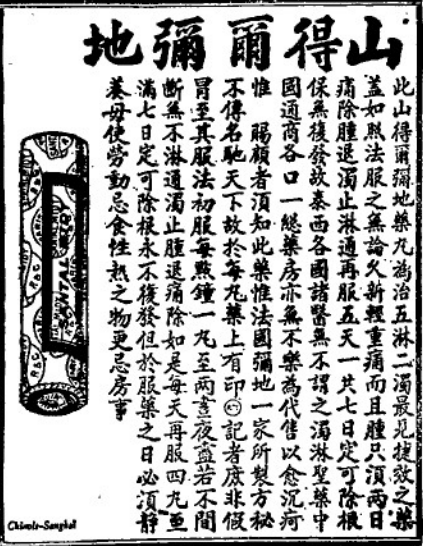 山得爾彌地
此山得爾彌地藥丸為治五淋二濁最見捷效之藥
蓋如照法服之無論久新輕重痛而且腫只須兩日
痛除腫退濁止淋通再服五天一共七日定可除根
保無復發故泰西各國諸醫無不謂之濁淋聖藥中
國通商各口一總藥房亦無不樂為代售以愈沉疴
惟 賜顧者須知此藥惟法國彌地一家所製方秘
不傳名馳天下故於每丸藥上有印記者庶非假
冒至其服法初服每點鐘一丸至兩晝夜盡若不間
斷無不淋通濁止腫退痛除如是每天再服四丸重
滿七日定可除根永不復發但於服藥之日必須靜
養毋使勞動忌食性熱之物更忌房事
SANTAL MIDY
Chinois-Sanghaï